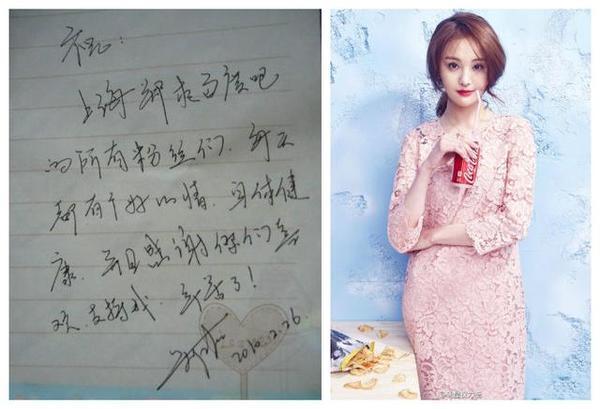 祝:
上海 百度吧
的所有粉丝们,每天
都有个好心情,身体健
康,并且感谢你们喜
欢,支持我,辛苦了!
2010.2.26
Coca-Cola